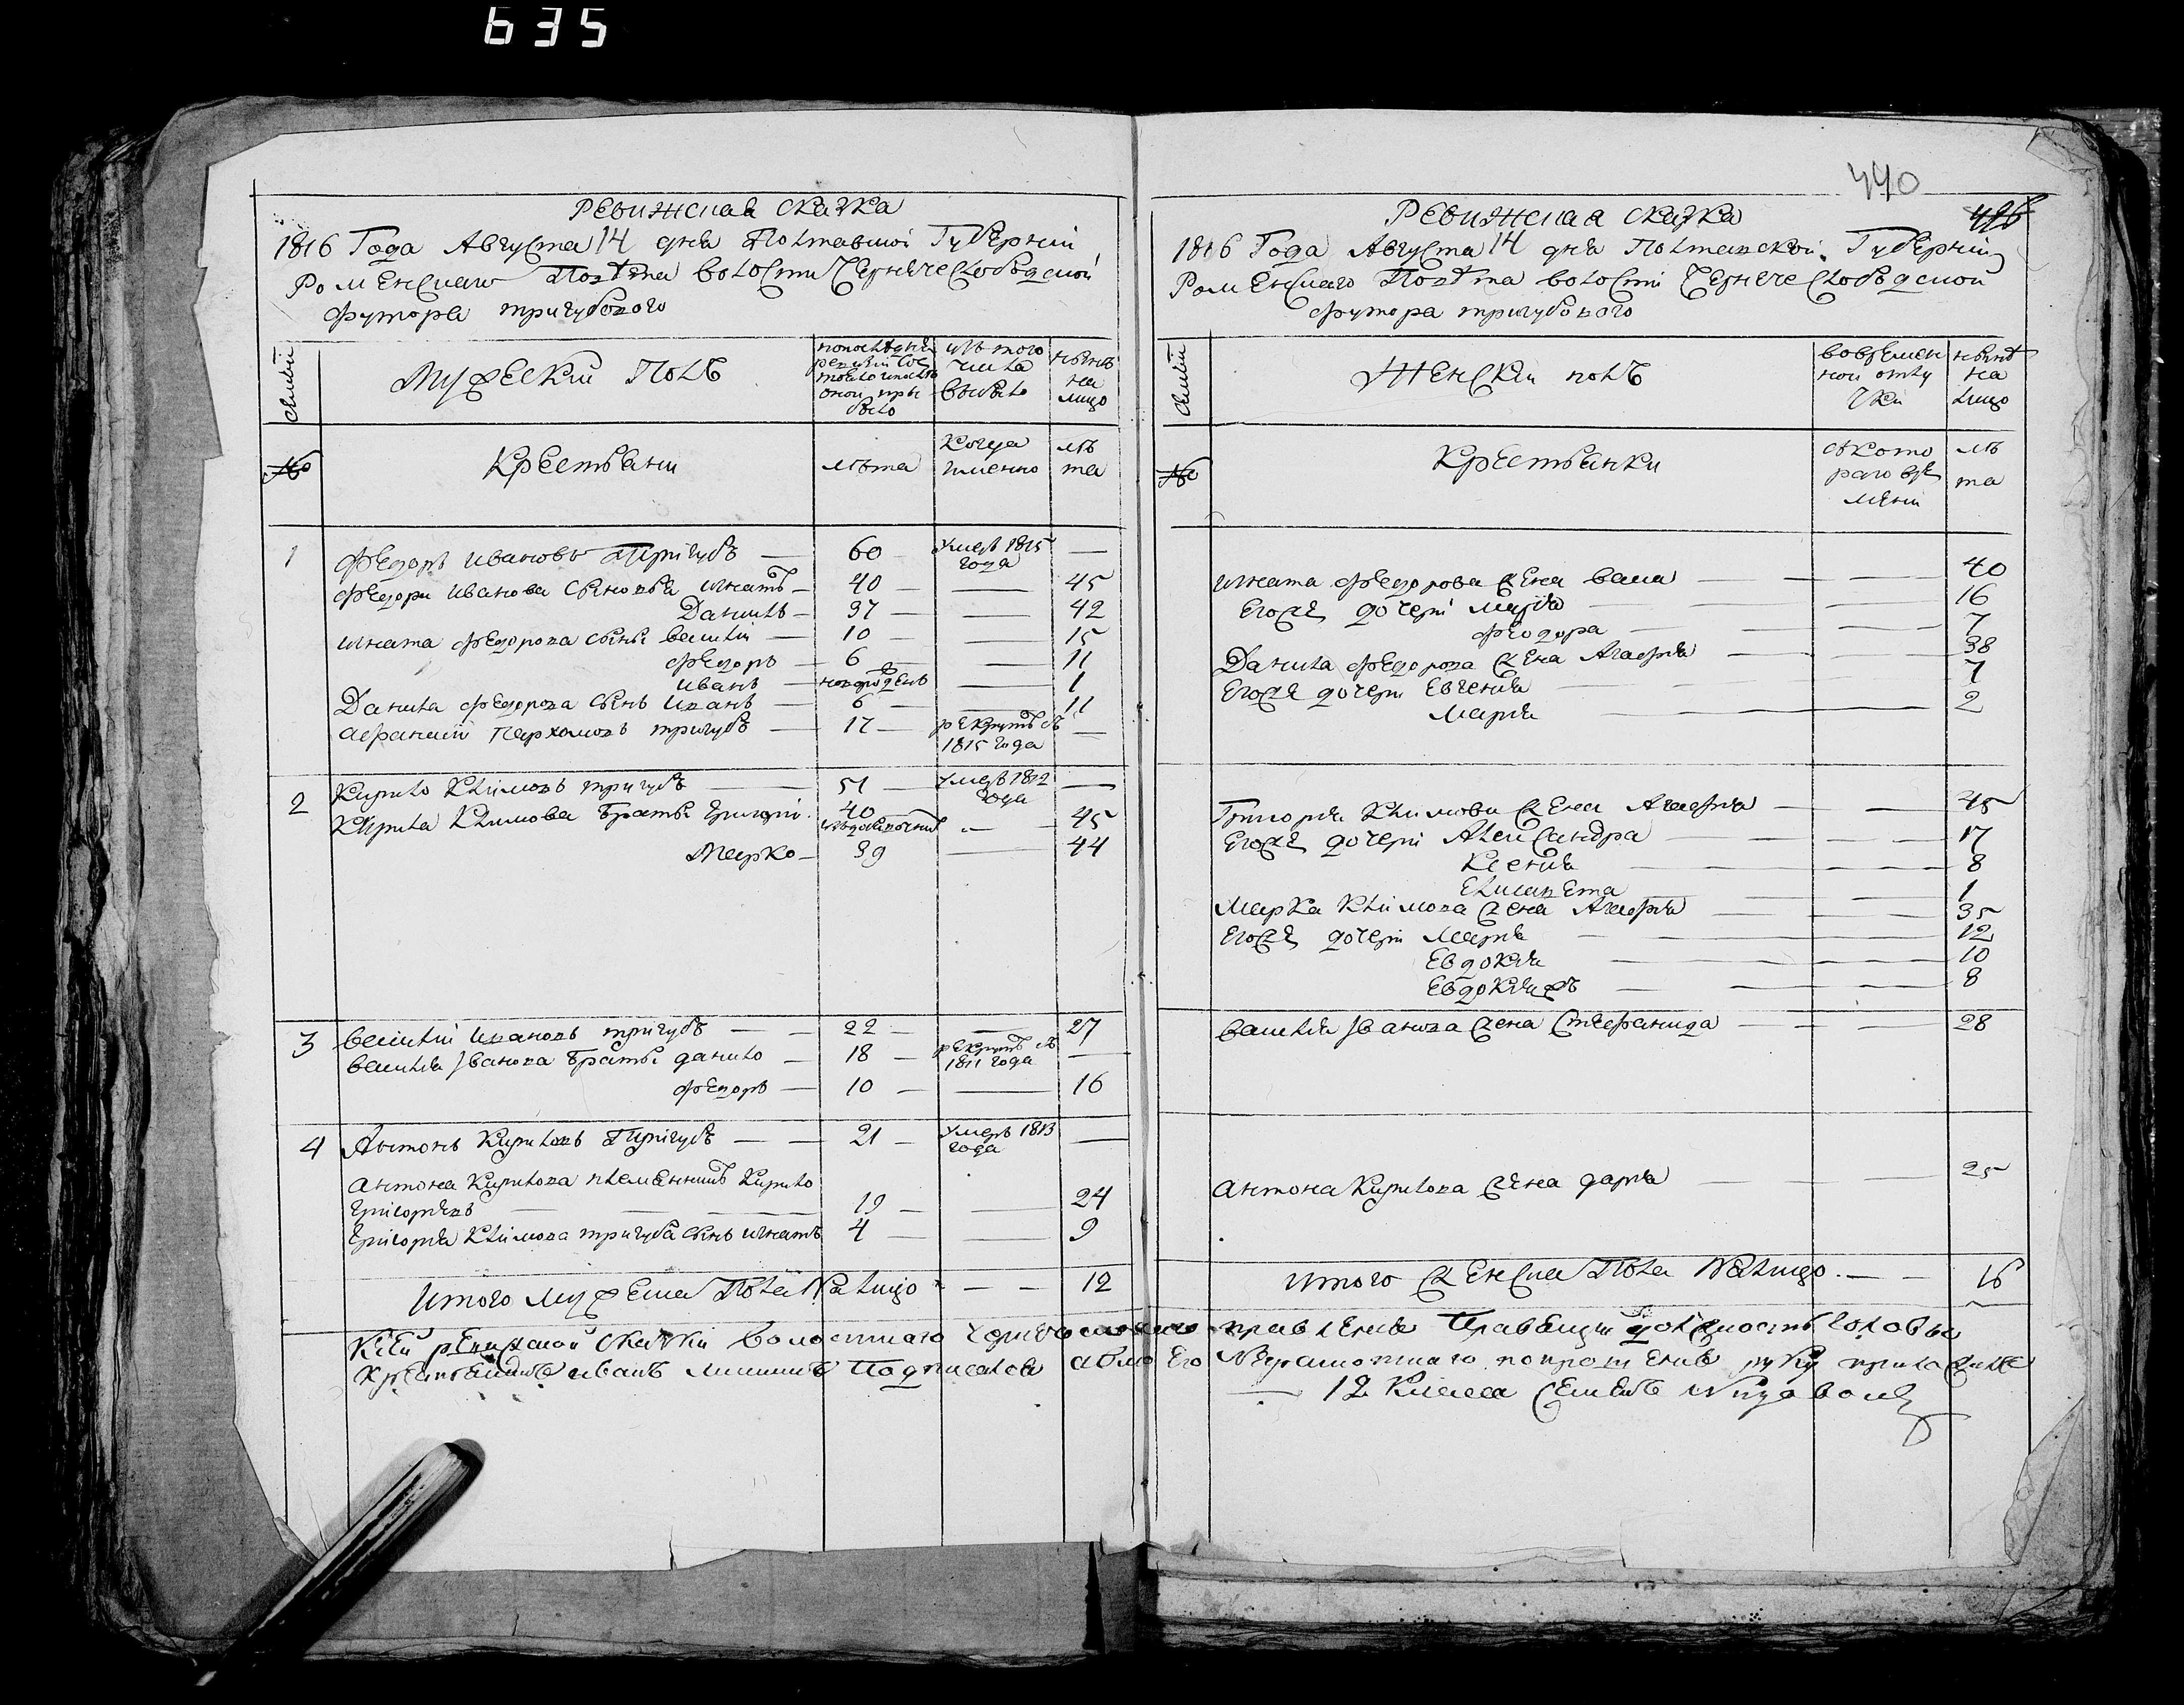 635
440
Ревижская сказка
1816 Года Августа 14 дня Полтавской Губернии
Роменскаго Повѣта волости Чернечеслободской
футора тригубового
Семьи
Мужеский Полъ
по последней ревизии состояло и после оной прибыло
изъ того числа выбыло
нынѣ на лицо
№
Крестьяни
лѣта
Когда именно
лѣта
1
Федоръ Ивановъ Тригубъ — 60 — умеръ 1815 года —
Федора Иванова сыновья Игнатъ — 40 — — 45
Данило — 37 — — 42
Игната Федорова сыны Василий — 10 — — 15
Федоръ — 6 — 11
Иванъ — новорожденъ — 1
Данила Федорова сынъ Иванъ — 6 — — 11
Афанасий Пархомовъ тригубъ — 17 — рекрутъ съ 1815 года —
2
Кирило Климовъ тригубъ — 51 — умеръ 1812 года —
Кирила Климова братья Григорий 40 — 45
Марко — 39 — 44
3
Василий Ивановъ тригубъ — 22 — — 27
Василия Иванова братья данило — 18 — рекрутъ съ 1811 года —
Федоръ — 10 — — 16
4
Антонъ Кириловъ Тригубъ — — 21 — умеръ 1813 года —
Антона Кирилова племенникъ Кирило
Григорьевъ — — — 19 — — 24
Григория Климова тригуба сынъ Игнатъ 4 — — 9
Итого мужеска Пола На лицо — — 12
Ревижская сказка
446
1816 Года Августа 14 дня Полтавской Губернии
Роменскаго Повѣта волости Чернечеслободской
футора тригубового
Семьи
Женский полъ
во временной отлучки
нынѣ на лицо
№
Крестьянки
съ котораго времени
лѣта
Игната Федорова жена Васса — — — 40
Его же дочери Марья — — — 16
Феодора — — — 7
Данила Федорова жена Агафья — — — 38
Его же дочери Евгения — — — 7
Марья — — — 2
Григория Климова жена Агафья — — 45
Его же дочери Александра — — — 17
Ксения — — — 8
Елисавета — — 1
Марка Климова жена Агафья — — — 35
Его же дочери Марья — — — 12
Евдокия — — — 10
Евдокия жъ — — — 8
Василия Иванова жена Стефанида — — — 28
Антона Кирилова жена дарья — — — 25
Итого женска Пола На лицо — — 16
Ксей ревижской скаски волостнаго правления Правящий должность головы
Крестьянинъ иванъ Подписался а вместо Его Неграмотнаго по прошению руку приложилъ
— 12 Класса